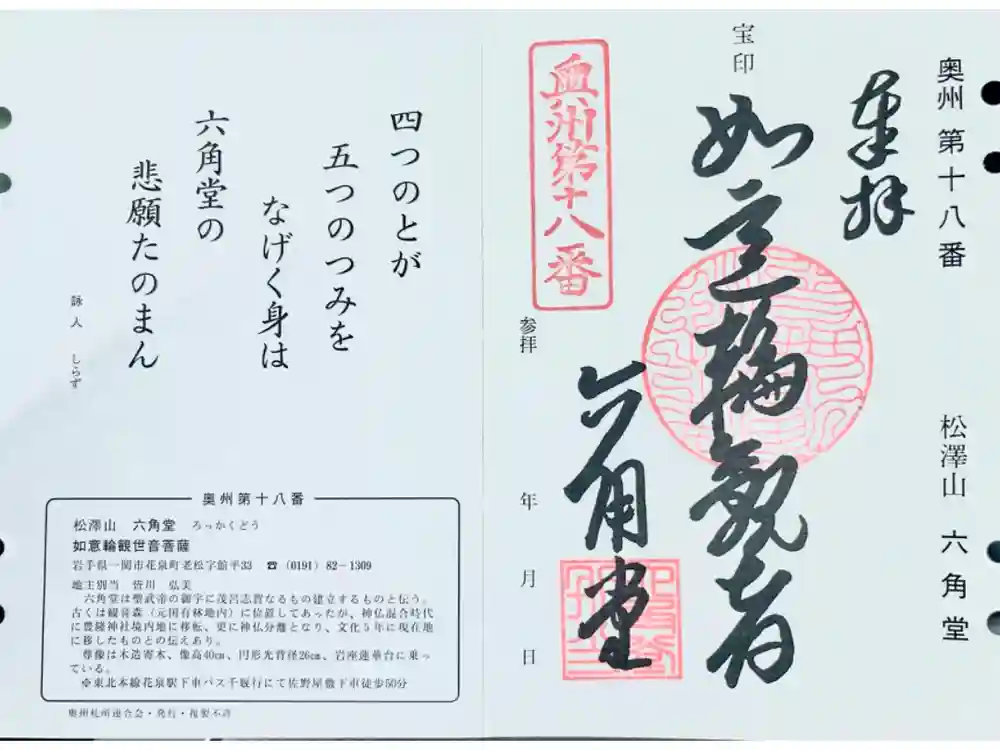 奥州 第十八番 松澤山 六角堂
奉拝
宝印
如意輪観音
奥州第十八番
参拝 年 月 日
六角堂
四つのとが
五つのつみを
なげく身は
六角堂の
悲願たのまん
詠人 しらず
奥州第十八番
松澤山 六角堂 ろっかくどう
如意輪観世音菩薩
岩手県一関市花泉町老松字館平33 ☎(0191)82-1309
地主別当 皆川 弘美
六角堂は聖武帝の御字に茂呂志賀なるもの建立するものと伝う。
古くは観音森(元国有林地内)に位置してあったが、神仏混合時代
に豊隆神社境内地に移転、更に神仏分離となり、文化5年に現在地
に移したものとの伝えあり。
尊像は木造寄木、像高40㎝、円形光背径26㎝、岩座蓮華台に乗っ
ている。
※東北本線花泉駅下車バス千厩行にて佐野屋敷下車徒歩50分
奥州札所連合会・発行・複製不許